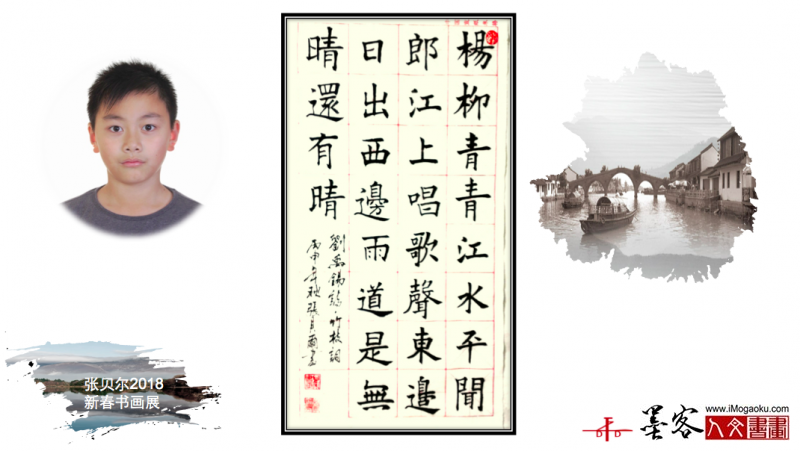 楊柳青青江水平聞
郎江上唱歌聲東邊
日出西邊雨道是無
晴還有晴
劉禹錫詩·竹枝詞
丙申年秋張貝爾書
张贝尔2018
新春书画展
墨客
www.iMogaoku.com
人文書畫